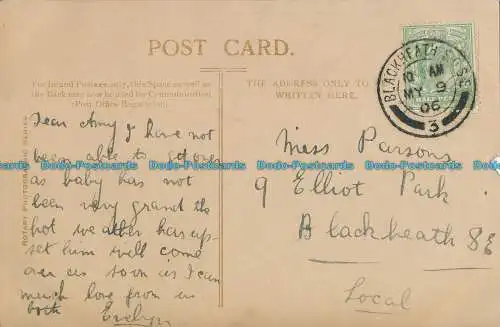 POST CARD.
For Inland Postage only, this Space as well as
the Back may now be used for Communication.
(Post Office Regulation).
THE ADDRESS ONLY TO
WRITTEN HERE.
BLACKHEATH S.E.
10 AM
MY 9
06
3
ROTARY PHOTOGRAPHIC SERIES
Dear Amy I have not
been able to get out
as baby has not
been very grand the
hot weather has up-
set him will come
over as soon as I can
much love from us
both Evelyn
Miss Parsons
9 Elliot Park
Blackheath SE
Local
Todo-Postales.com